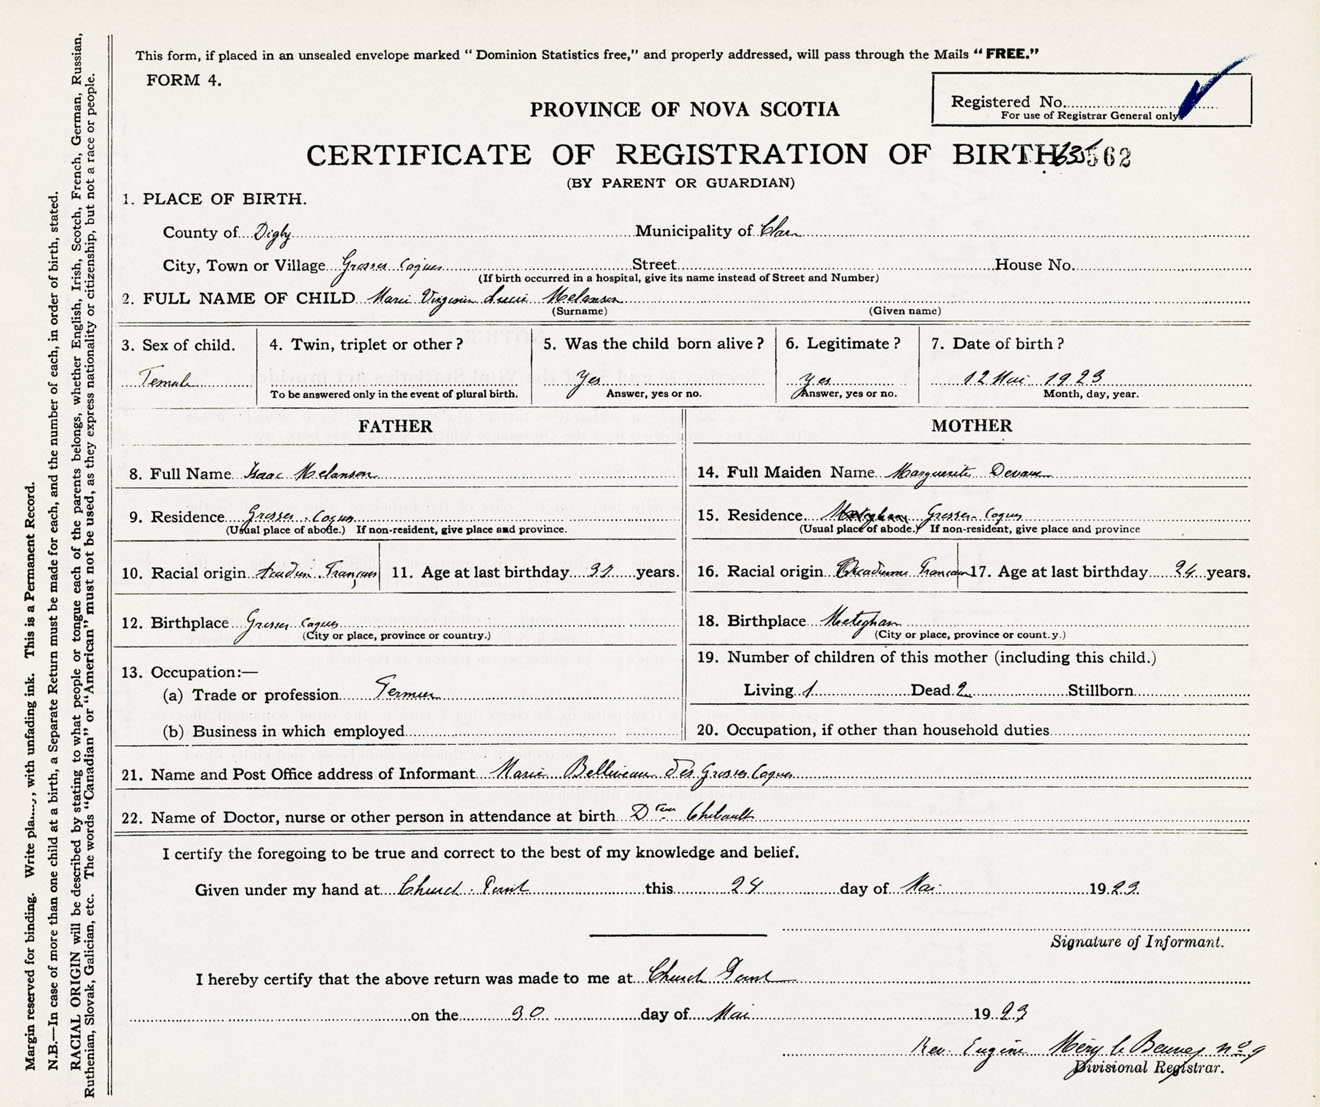 This form, if placed in an unsealed envelope marked "Dominion Statistics free," and properly addressed, will pass through the Mails "FREE."
FORM 4.
Registered No.
For use of Registrar General only
PROVINCE OF NOVA SCOTIA
CERTIFICATE OF REGISTRATION OF BIRTH 562
(BY PARENT OR GUARDIAN)
1. PLACE OF BIRTH.
County of Digby Municipality of Clare
City, Town or Village Grosses Coques Street House No.
(If birth occurred in a hospital, give its name instead of Street and Number)
2. FULL NAME OF CHILD Marie Virginie Lucie Melanson
(Surname) (Given name)
3. Sex of child. 4. Twin, triplet or other? 5. Was the child born alive? 6. Legitimate? 7. Date of birth?
Female Yes Yes 12 Mai 1923
To be answered only in the event of plural birth. Answer, yes or no. Answer, yes or no. Month, day, year.
FATHER
8. Full Name Isaac Melanson
9. Residence Grosses Coques
(Usual place of abode.) If non-resident, give place and province.
10. Racial origin Français 11. Age at last birthday years.
12. Birthplace Grosses Coques
(City or place, province or country.)
13. Occupation:—
(a) Trade or profession Fermier
(b) Business in which employed
MOTHER
14. Full Maiden Name Marguerite
15. Residence Grosses Coques
(Usual place of abode.) If non-resident, give place and province
16. Racial origin 17. Age at last birthday 24 years.
18. Birthplace Meteghan
(City or place, province or count.y.)
19. Number of children of this mother (including this child.)
Living 1 Dead 2 Stillborn
20. Occupation, if other than household duties
21. Name and Post Office address of Informant Marie Belliveau des Grosses Coques
22. Name of Doctor, nurse or other person in attendance at birth
I certify the foregoing to be true and correct to the best of my knowledge and belief.
Given under my hand at Church Point this 24 day of Mai 1923.
Signature of Informant.
I hereby certify that the above return was made to me at Church Point
on the 30 day of Mai 1923
Rev. Eugène
Divisional Registrar.
Margin reserved for binding. Write with unfading ink. This is a Permanent Record.
N.B.—In case of more than one child at a birth, a Separate Return must be made for each, and the number of each, in order of birth, stated.
RACIAL ORIGIN will be described by stating to what people or tongue each of the parents belongs, whether English, Irish, Scotch, French, German, Russian,
Ruthenian, Slovak, Galician, etc. The words "Canadian" or "American" must not be used, as they express nationality or citizenship, but not a race or people.